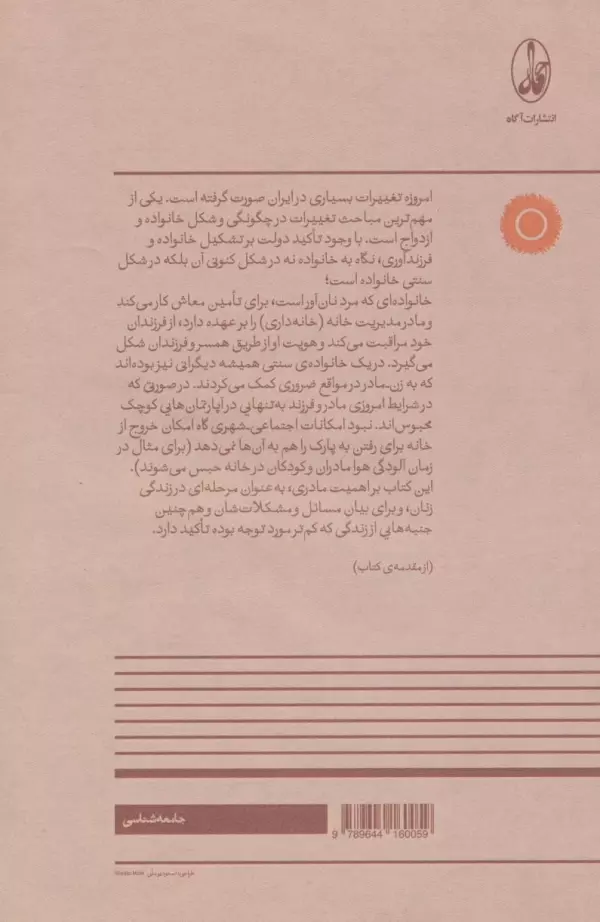 آگاه
انتشارات آگاه
امروزه تغییرات بسیاری در ایران صورت گرفته است. یکی از
مهم‌ترین مباحث تغییرات در چگونگی و شکل خانواده و
ازدواج است. با وجود تأکید دولت بر تشکیل خانواده و
فرزندآوری، نگاه به خانواده نه در شکل کنونی آن بلکه در شکل
سنتی خانواده است؛
خانواده‌ای که مرد نان‌آور است، برای تأمین معاش کار می‌کند
و مادر مدیریت خانه (خانه‌داری) را بر عهده دارد، از فرزندان
خود مراقبت می‌کند و هویت او از طریق همسر و فرزندان شکل
می‌گیرد. در یک خانواده‌ی سنتی همیشه دیگرانی نیز بوده‌اند
که به زن-مادر در مواقع ضروری کمک می‌کردند. در صورتی که
در شرایط امروزی مادر و فرزند به‌تنهایی در آپارتمان‌هایی کوچک
محبوس‌اند. نبود امکانات اجتماعی-شهری گاه امکان خروج از
خانه برای رفتن به پارک را هم به آن‌ها نمی‌دهد (برای مثال در
زمان آلودگی هوا مادران و کودکان در خانه حبس می‌شوند).
این کتاب بر اهمیت مادری، به عنوان مرحله‌ای در زندگی
زنان، و برای بیان مسائل و مشکلات‌شان و هم‌چنین
جنبه‌هایی از زندگی که کم‌تر مورد توجه بوده تأکید دارد.
(از مقدمه‌ی کتاب)
جامعه‌شناسی
9 789644 160059